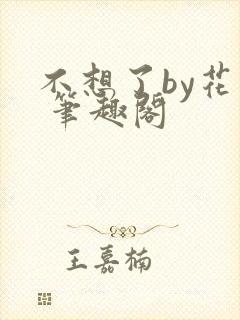 不想了by花
笔趣阁
王嘉楠